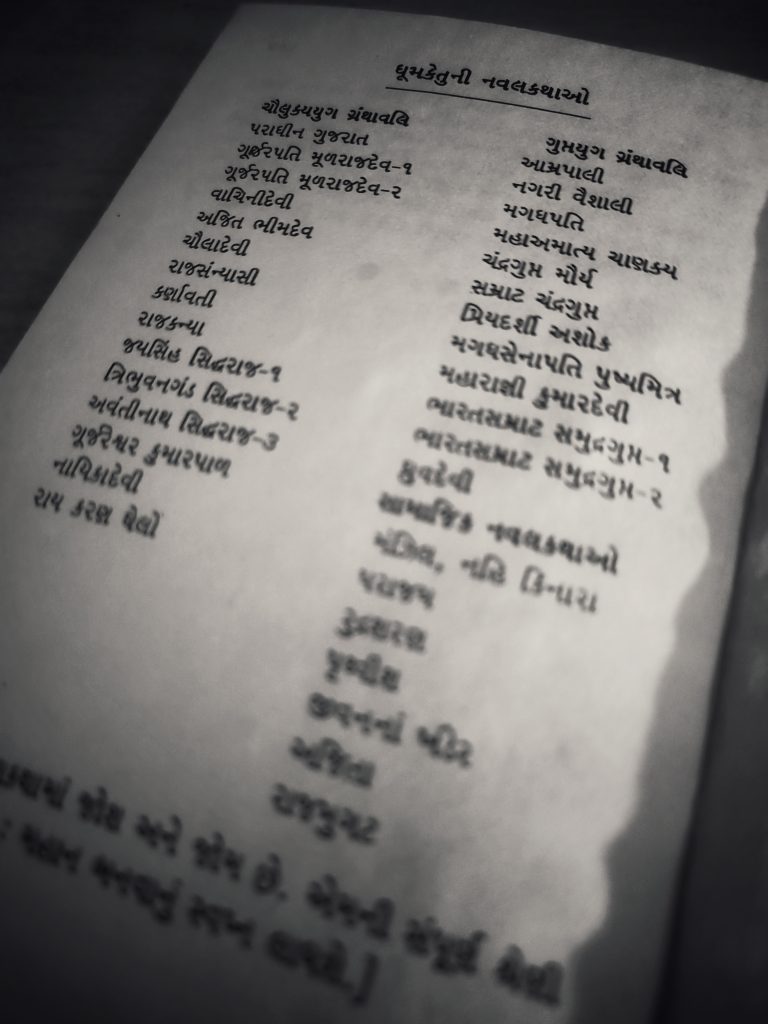 ધૂમકેતુની નવલકથાઓ
ચૌલુક્યયુગ ગ્રંથાવલિ
પરાધીન ગુજરાત
ગૂર્જરપતિ મૂળરાજદેવ-૧
ગૂર્જરપતિ મૂળરાજદેવ-૨
વાચિનીદેવી
અજિત ભીમદેવ
ચૌલાદેવી
રાજસંન્યાસી
કર્ણાવતી
રાજકન્યા
જયસિંહ સિદ્ધરાજ-૧
ત્રિભુવનગંડ સિદ્ધરાજ-૨
અવંતીનાથ સિદ્ધરાજ-૩
ગૂર્જરેશ્વર કુમારપાળ
નાયિકાદેવી
રાય કરણ ઘેલો
ગુપ્તયુગ ગ્રંથાવલિ
આમ્રપાલી
નગરી વૈશાલી
મગધપતિ
મહાઅમાત્ય ચાણક્ય
ચંદ્રગુપ્ત મૌર્ય
સમ્રાટ ચંદ્રગુપ્ત
પ્રિયદર્શી અશોક
મગધસેનાપતિ પુષ્યમિત્ર
મહારાજ્ઞી કુમારદેવી
ભારતસમ્રાટ સમુદ્રગુપ્ત-૧
ભારતસમ્રાટ સમુદ્રગુપ્ત-૨
ધ્રુવદેવી
સામાજિક નવલકથાઓ
મંઝિલ, નહિ કિનારા
પરાજય
રુદ્રશરણ
પૃથ્વીશ
જીવનનાં ખંડેર
અજિતા
રાજમુગટ
જોશ અને જોમ છે. એમની સંપૂર્ણ શૈલી
મહાન સ્વપ્ન